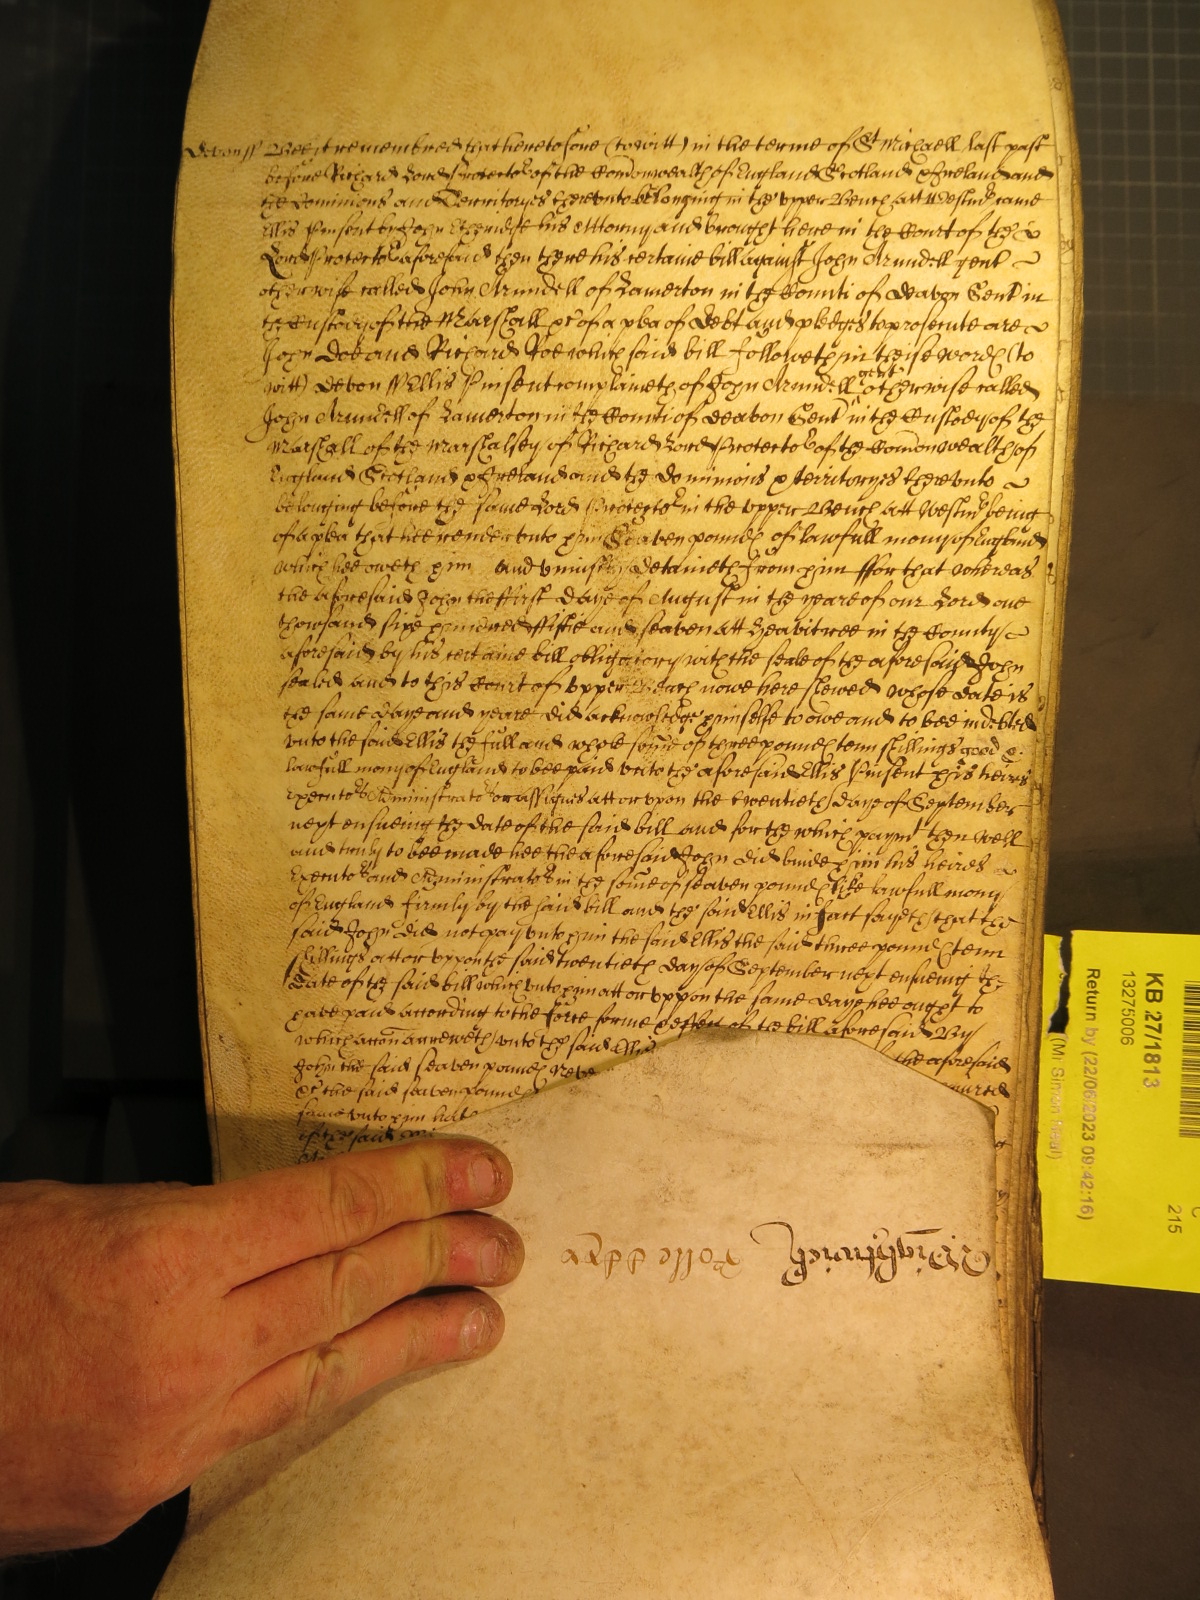 Devon ss Bee it remembred that heretofore (to witt) in the terme of St Michaell last past
before Richard Lord Protector of the Comonwealth of England Scotland & Ireland and
the Dominions and Territoryes thereunto belonging in the upper Bench att Westmr came
Ellis Pinsent by John his Attorny and brought here in the Court of the
Lord Protector aforesaid then there his certaine bill against John Arundell gent
otherwise called John Arundell of Lamerton in the Counti of Deavon Gent in
the Custody of the Marshall &c of a plea of debt and pledges to prosecute are
John Doe and Richard Roe which said bill followeth in theise words (to
witt) Devon ss Ellis Pinsent complaineth of John Arundell gent otherwise called
John Arundell of Lamerton in the Counti of Deavon Gent in the Custody of the
Marshall of the Marshalsey of Richard Lord Protector of the Comonwealth of
England Scotland & Ireland and the dominions & territoryes thereunto
belonging before the same Lord Protector in the upper Bench att Westmr being
of a plea that hee render unto him Seaven pounds of lawfull mony of England
which hee oweth him and uniustly detaineth from him ffor that whereas
the aforesaid John the ffirst daye of August in the yeare of our Lord one
thowsand sixe hundred ffiftie and seaven att Heavitree in the County
aforesaid by his certaine bill obligatory with the seale of the aforesaid John
sealed and to this Court of upper Bench nowe here shewed whose date is
the same daye and yeare did acknowledge himselfe to owe and to bee indebted
unto the said Ellis the full and whole some of three pounds tenn shillings good &
lawfull mony of England to bee paid unto the aforesaid Ellis Pinsent his heires
Executors Administrators or assignes att or upon the twentieth daye of September
next ensueing the date of the said bill and for the which paymt then well
and truly to bee made hee the aforesaid John did binde him his heires
Executors and Administrators in the some of seaven pounds like lawfull mony
of England firmly by the said bill and the said Ellis in fact sayeth that the
said John did not pay unto him the said Ellis the said three pounds tenn
shillings att or uppon the said twentieth day of September next ensueing the
date of the said bill which unto him att or uppon the same daye hee ought to
have paid according to the force forme & effect of the bill aforesaid By
which accon accreweth unto the said Ellis the aforesaid
John the said seaven pounds Neve
&c the said seaven pounds
same unto him hat
the said
Wightwick Rolle adhuc
KB 27/1813
13275006
Return by (22/06/2023 09:42:16)
(Mr Simon Neal)
215